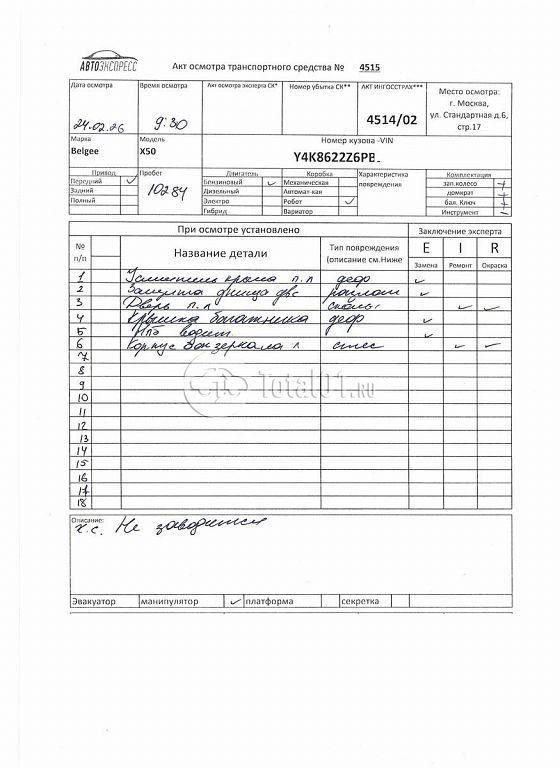 АВТОЭКСПРЕСС
Акт осмотра транспортного средства № 4515
Дата осмотра Время осмотра Акт осмотра эксперта СК* Номер убытка СК** АКТ ИНГОССТРАХ*** Место осмотра:
г. Москва,
ул. Стандартная д.6,
стр.17
24.02.26 9:30 4514/02
Марка Модель Номер кузова -VIN
Belgee X50 Y4K8622Z6PB
Привод Пробег Двигатель Коробка Характеристика повреждения Комплектация
Передний ✓ 10284 Бензиновый ✓ Механическая зап.колесо +
Задний Дизельный Автомат-кая домкрат +
Полный Электро Робот ✓ бал. Ключ +
Гибрид Вариатор Инструмент -
При осмотре установлено Заключение эксперта
№ п/п Название детали Тип повреждения (описание см.Ниже E I R
Замена Ремонт Окраска
1 Усилитель крыла п.л деф ✓
2 Защита днища двс разлом ✓
3 Дверь п.л сколы ✓ ✓
4 Крышка багажника деф ✓
5 НПБ водит ✓
6 Корпус зеркала л ✓ ✓
7
8
9
10
11
12
13
14
15
16
17
18
Total01.RU
Описание:
х.с. Не заводится
Эвакуатор манипулятор ✓ платформа секретка